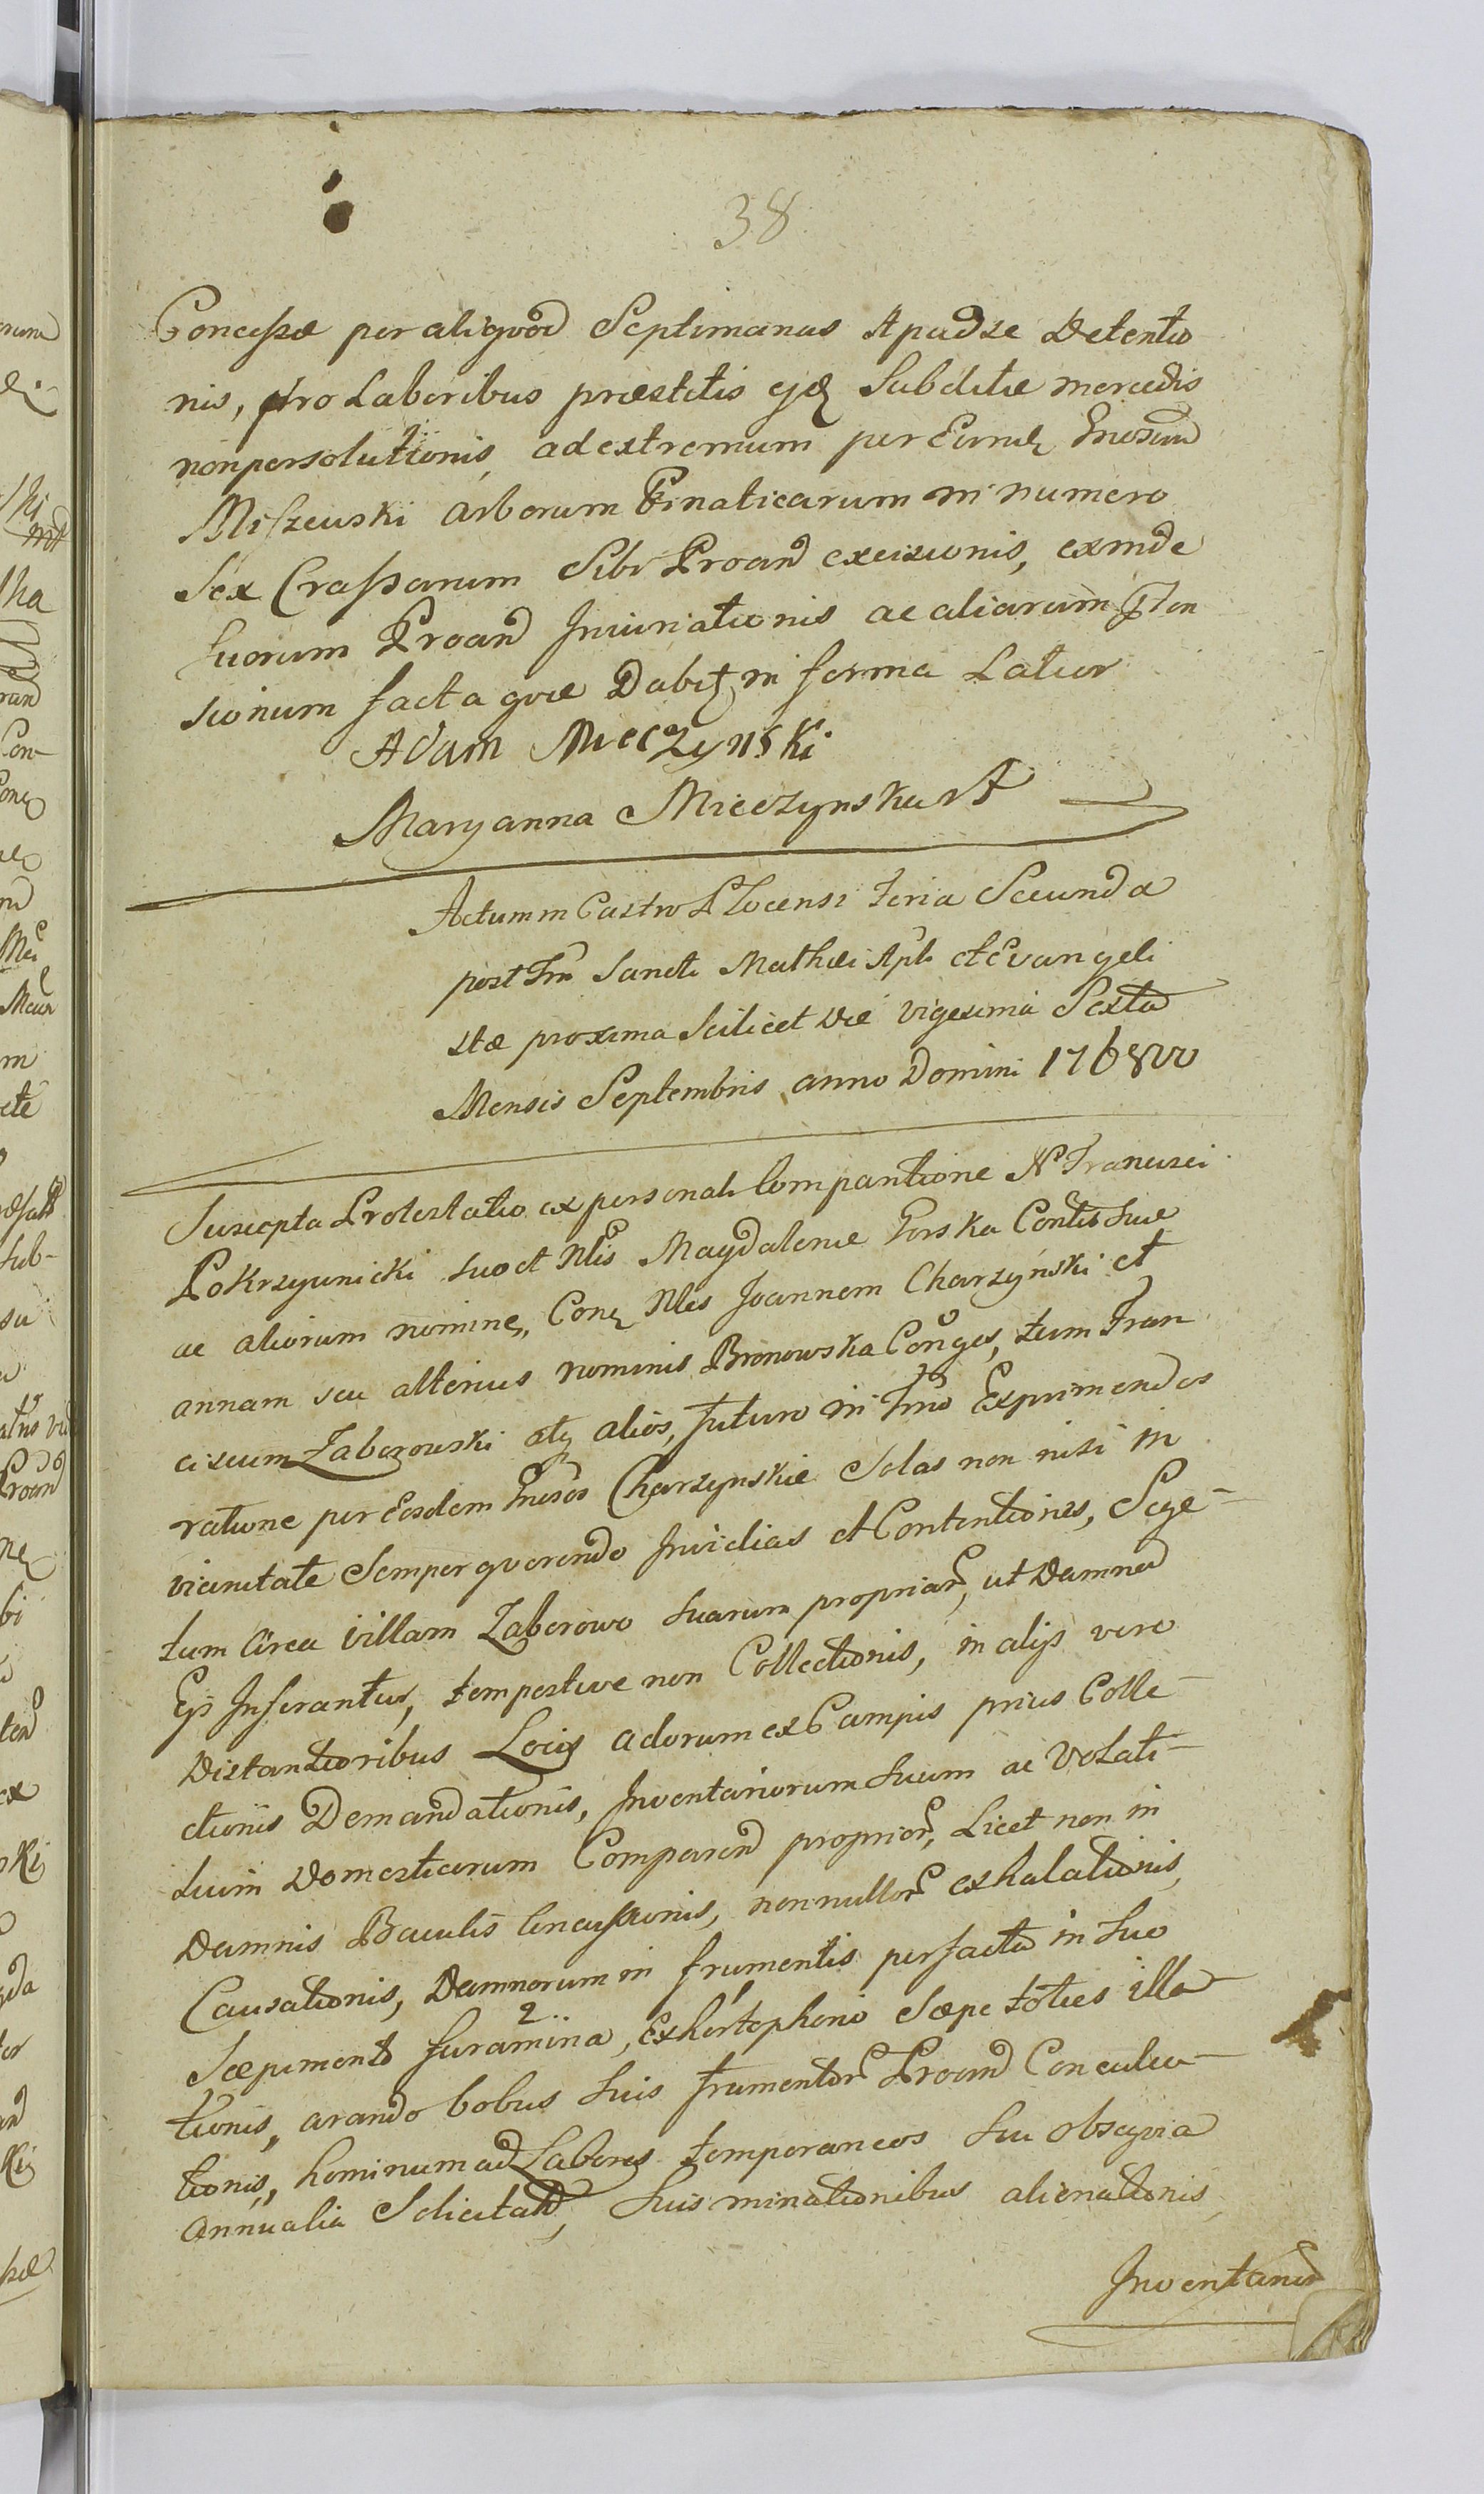 38
Concessæ per aliqvod Septimanas Apud se Detentio
nis, pro Laboribus præstitis ejq Subditæ mercedis
nonpersolutionis, ad extremum per Eundq Gnosum
Miszewski arborum Pinaticarum in numero
Sex Crassarum Sibi Proand excisionis, exinde
suorum Proand Iniuriationis ac aliarum
sionum facta qvæ Dabit in forma Latior
Adam Mieczynski
Maryanna Mieczynska
Actum in Castro Plocensi Feria Secunda
post Ftm Sancti Mathæi Apli et Evangeli
stæ proxima Scilicet Die vigesima Sexta
Mensis Septembris anno Domini 1768vo
Suscepta Protestatio ex personali Comparitione N Francisci
Pokrzywnicki suo et Nlis Magdalenæ Gorska Contis suæ
ac aliorum nomine, Conq Nles Joannem Charzyński et
annam seu alterius nominis Bronowska Conges, tum Fran
ciscum Zaborowski atq alios, futuro in Tmo Exprimendos
ratione per Eosdem Gnosos Charzynskie Solas non nisi in
vicinitate Semper qverendo Invidias et Contentiones, Sege-
tum Circa villam Zaborowo suarum propriar, ut Damna
Eis Inferantur, tempestive non Collectionis, in alijs vero
Distantioribus Locis adorum ex Campis prius Colle-
ctionis Demandationis, Inventariorum suum ac Volati-
lium Domesticarum Comparend proprior, Licet non in
Damnis Baculis Concussionis, nonnullor exhalationis,
Causationis, Damnorum in frumentis per facta in suo
Sæpimento furamina, Ex Sæpe toties illa-
tionis, arando bobus suis frumentor Proand Conculca-
tionis, hominum ad Labores temporaneos seu obseqvia
Annualia Solicitand, suis minationibus alienationis,
Inventarior